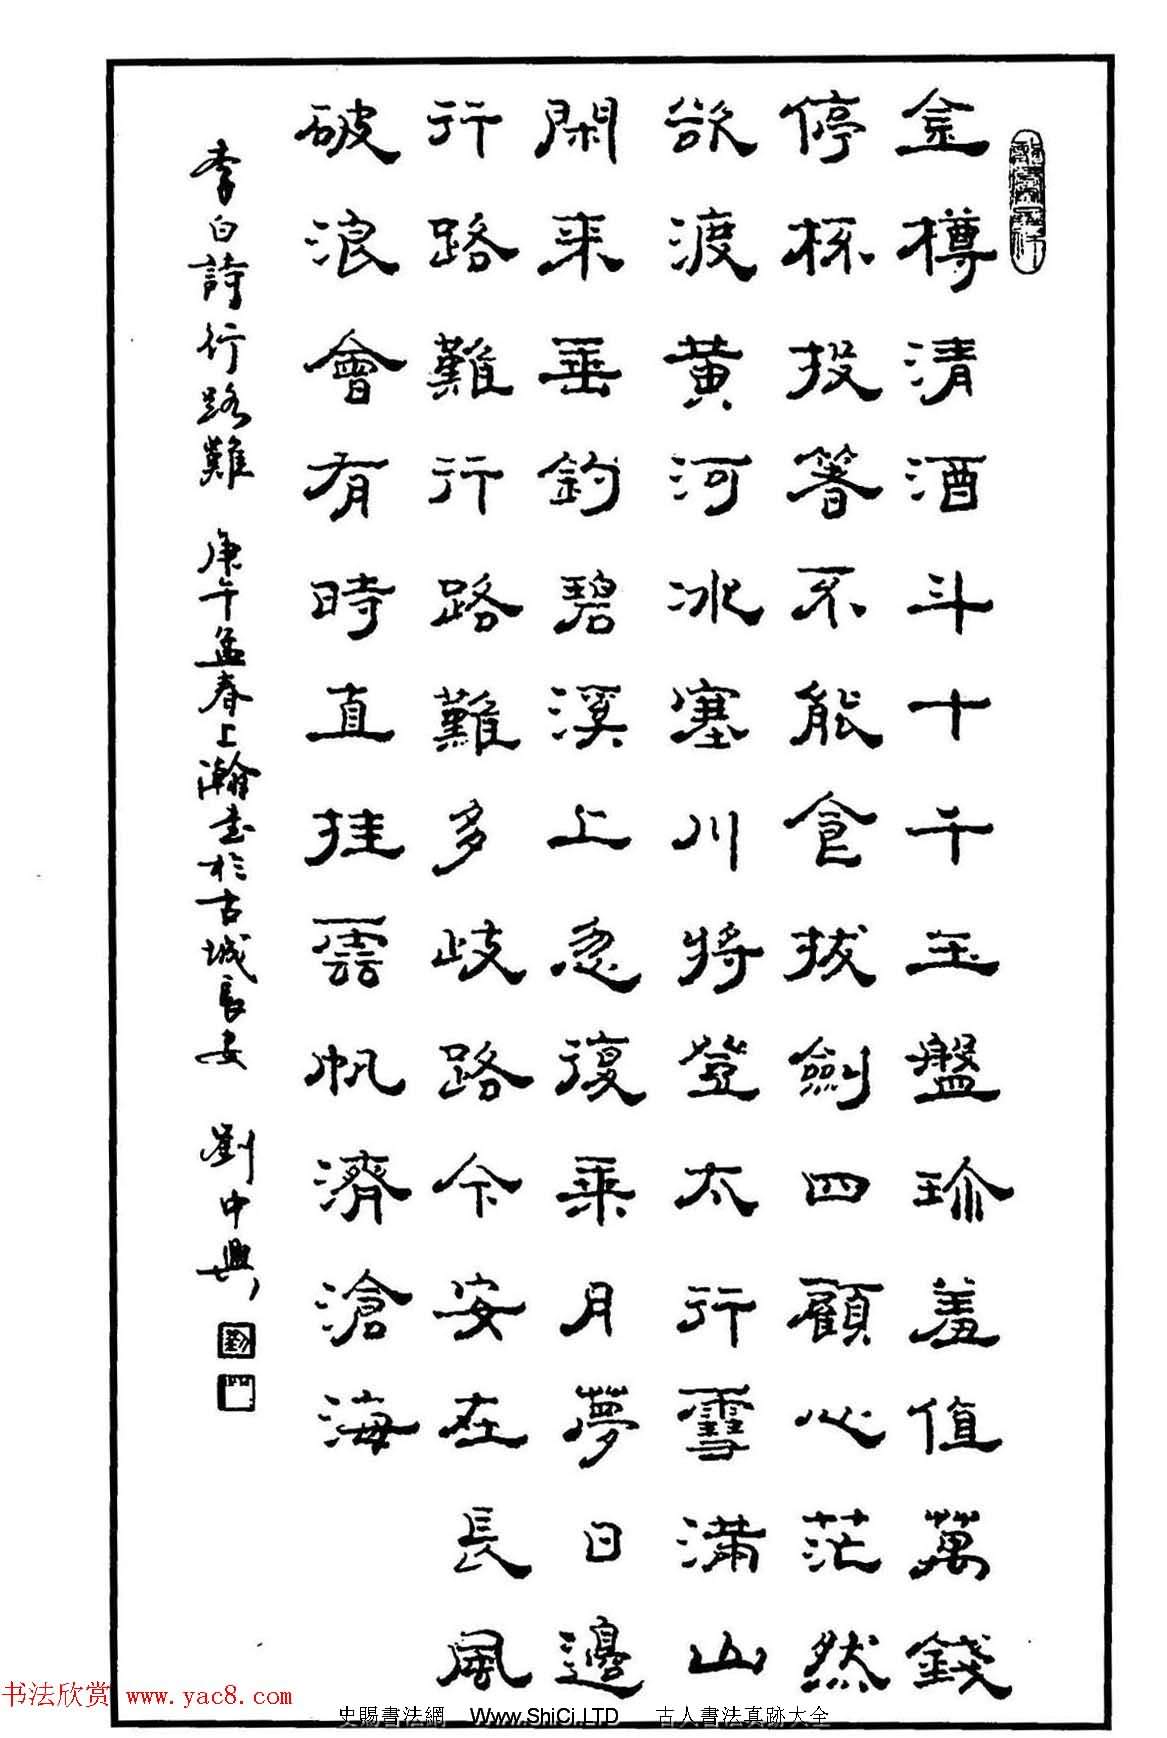 金樽清酒斗十千玉盤珍羞值萬錢
停杯投箸不能食拔劍四顧心茫然
欲渡黃河冰塞川將登太行雪滿山
閑来垂釣碧溪上忽復乘月夢日邊
行路難行路難多歧路今安在長風
破浪會有時直挂雲帆濟滄海
李白詩行路難 庚午孟春上瀚书於古城長安 劉中興
书法欣赏 www.yac8.com
史賜書法網 Www.ShiCi.LTD 古人書法真跡大全